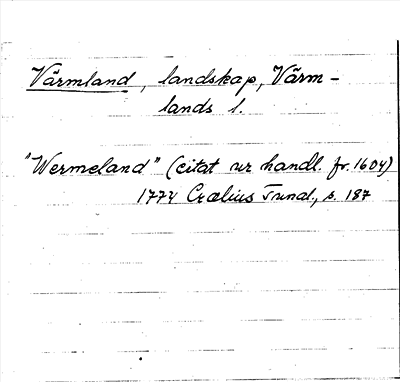 Värmland, landskap, Värm-
lands l.
"Wermeland" (citat ur handl. fr. 1604)
1774 Crælius Tund., s. 187